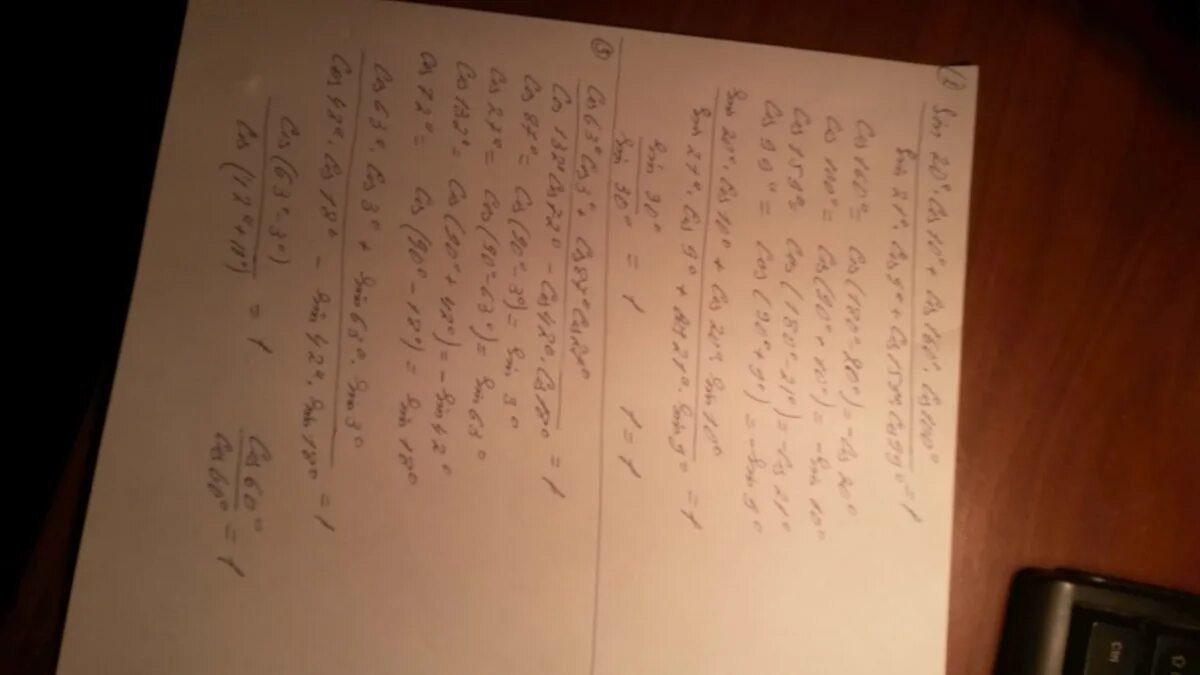 2) Sin 20° · Cos 10° + Cos 160° · Cos 100°
Sin 21° · Cos 9° + Cos 159° Cos 99° = 1
Cos 160° = Cos (180° - 20°) = - Cos 20°
Cos 100° = Cos (90° + 10°) = - Sin 10°
Cos 159° = Cos (180° - 21°) = - Cos 21°
Cos 99° = Cos (90° + 9°) = - Sin 9°
Sin 20° · Cos 10° + Cos 20° · Sin 10°
Sin 21° · Cos 9° + 21° · Sin 9° = 1
Sin 30°
Sin 30° = 1 1 = 1
3) Cos 63° Cos 3° + Cos 87° Cos 27°
Cos 132° Cos 72° - Cos 42° · Cos 18° = 1
Cos 87° = Cos (90° - 3°) = Sin 3°
Cos 27° = Cos (90° - 63°) = Sin 63°
Cos 132° = Cos (90° + 42°) = - Sin 42°
Cos 72° = Cos (90° - 18°) = Sin 18°
Cos 63° · Cos 3° + Sin 63° · Sin 3°
Cos 18° - Sin 42° · Sin 18° = 1
Cos (63° - 3°) Cos 60°
Cos (42° + 18°) = 1 Cos 60° = 1